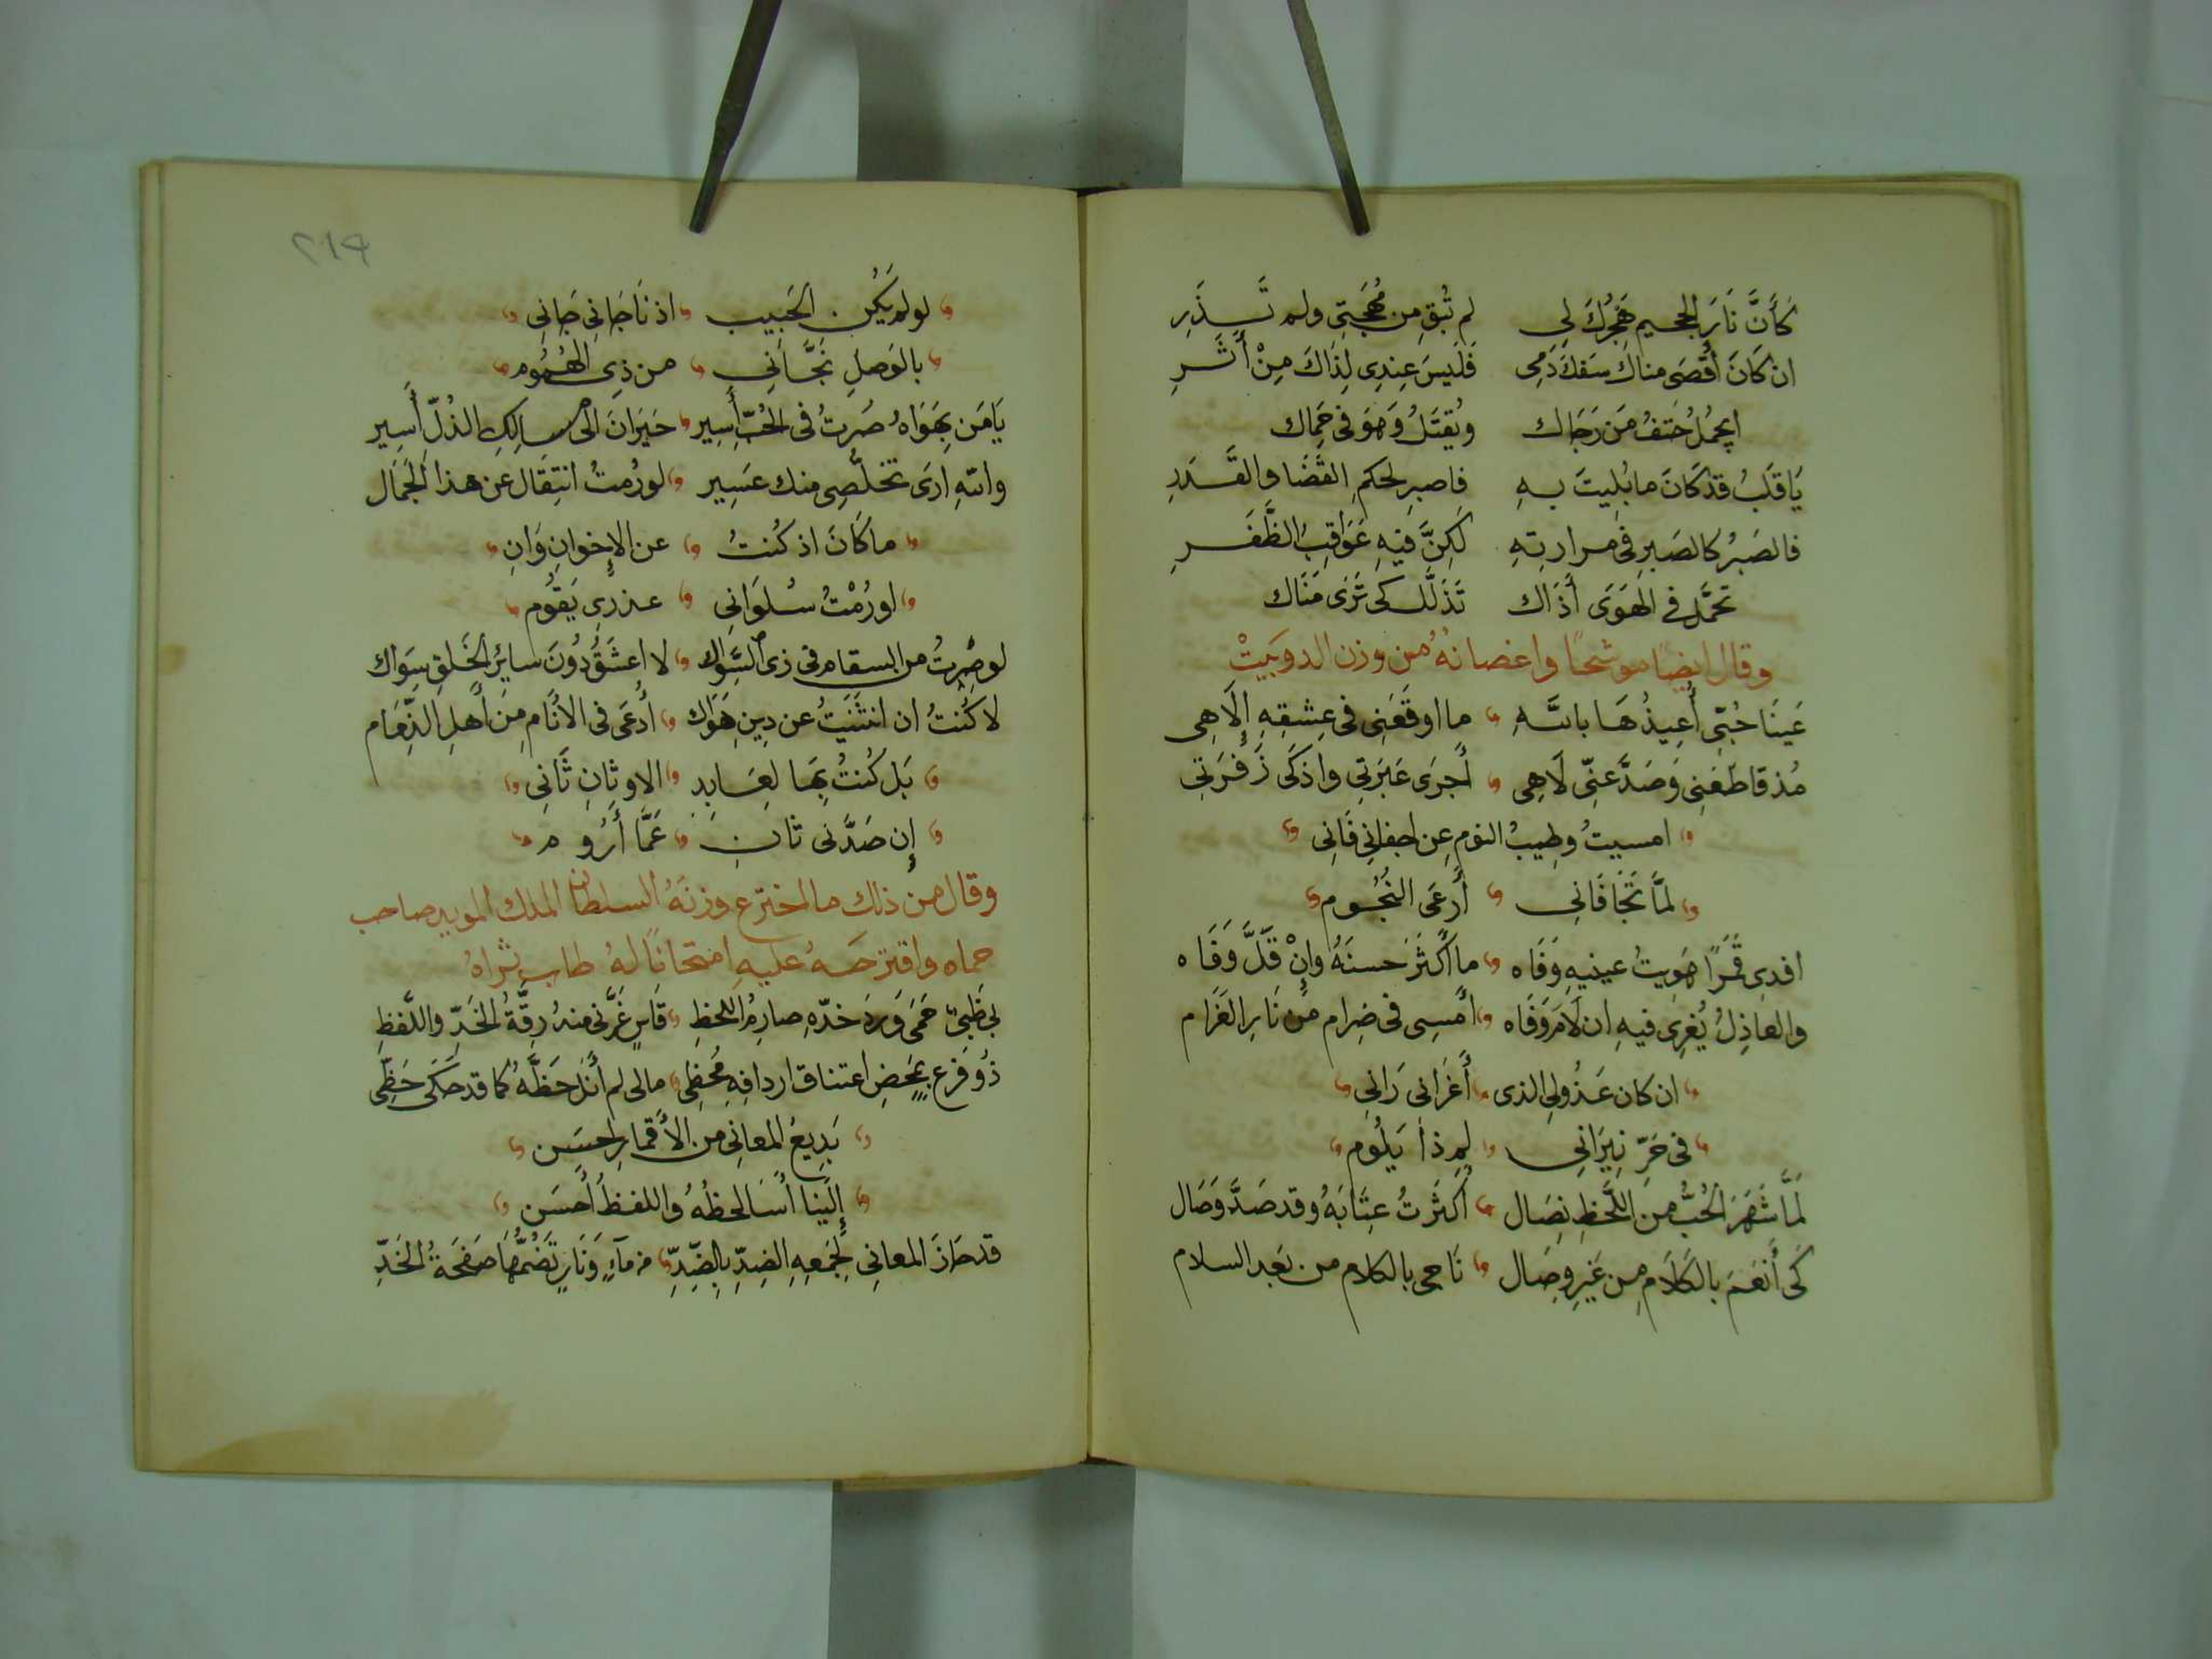 كَأَنَّ نَارَ الجحيم هَجْرُكَ لِي لم تُبْقِ مِن مُهْجَتِي ولم تَذَرِ
ان كَانَ أَقْصَى مناك سَفكَ دَمِي فَلَيسَ عِندِي لِذَاكَ مِنْ أَثَرِ
ايجمُلُ حَتفُ مَن رَجَاك ويُقتَلُ وَهوَ في حِمَاك
يَا قَلبُ قد كَانَ ما بُلِيتَ بِهِ فاصبِر لحكمِ القَضَا والقَدَرِ
فالصَبرُ كالصَبرِ في مرارتِهِ لَكِنَّ فيهِ عَوَاقِبَ الظَّفَرِ
تَحمَّل في الهَوَى أَذَاك تَذَلَّل كى تَرَى مَنَاك
وقال ايضًا موشحًا واغصانهُ من وزن الدوبَيتْ
عَينَا حُبّي أُعِيذُهَا باللهِ ما اوقَعَنِي في عِشقِهِ إِلَاهِى
مُذ قاطَعَنِي وَصَدَّ عَنِّي لَاهِى أَجرَى عَبَرَتِي واذكَى زَفرَتِي
امسيتُ وطِيبُ النومِ عن اجفانِي فَانِي
لمَّا تَجَافَانِي أَرعَى النُجُوم
افدِى قَمَرًا هَوِيتُ عينيهِ وَفَاه ما أَكثَرَ حسنَهُ وإِنْ قَلَّ وَفَاه
والعاذِلُ يُغرِى فيهِ ان لَامَ وَفَاه أَمسِى في ضِرام من نَارِ الغَرَام
ان كان عَذُولِي الذى أَغرَانى رَانِى
في حَرِّ نِيرَانِي لِم ذا يَلُوم
لَمَّا شَهَرَ الحُبُّ من اللَّحظِ نِصَال أَكثَرتُ عِتَابَهُ وقد صَدَّ وَصَال
كَى أَنعَمَ بالكَلَام مِن غَيرِ وِصَال نَاجى بالكلام من بَعد السلام
٢١٩
لو لم يَكُن الحَبِيب اذ نَاجَانِي جَانِي
بالوَصلِ نَجَّانِي من ذِى الهُمُوم
يَا مَن بِهَوَاهُ صُرتُ في الحُبّ أَسِير حَيرَانَ الى مسالِكِ الذُلّ أَسِير
واللهِ ارَى تخلُّصِى منك عَسِير لو رُمتُ انتِقَال عن هذا الجَمَال
ما كَانَ اذ كُنتُ عن الإِخوانِ وَانِ
لو رُمْتُ سُلوَانِي عذرِى يَقُوم
لو صِرتُ من السقام في زى السِّوَاك لا اعشَقُ دُونَ سايرُ الخَلقِ سِوَاك
لا كُنتُ ان انثَنَيتُ عن دِينِ هَوَاك أُدعَى فى الأَنَام مِن أَهلِ الذِّمَام
بَل كُنتُ بِهَا لِعَابِدِ الاوثانِ ثَانِي
إِن صَدَّنى ثانِ عَمَّا أَرُوم
وقال من ذلك ما اخترع وزنَهُ السلطان الملك المويد صاحب
حماه واقترحَهُ عليهِ امتحانًا لهُ طاب ثراهُ
بِي ظَبيٌ حَمَى وَردَ خدّهِ صارِمُ اللحظِ قَاسٍ غَرَّني منهُ رِقَّةُ الخَدِّ واللَّفظِ
ذُو فَرعٍ بمَحضِ اعتناق اردافِهِ مُحظِى مالى لم أَنَل حَظَّهُ كما قد حَكَى حَظِّى
بَدِيعُ المعانِي من الأَقمارِ احسَن
إِلَينَا أَسَا لحظُهُ واللفظُ أَحسَن
قد حَازَ المعانِي لِجَمعِهِ الضِدّ بالضِّدِّ من مآءٍ وَنَارٍ تَضُمُّهَا صَفحَةُ الخَدِّ